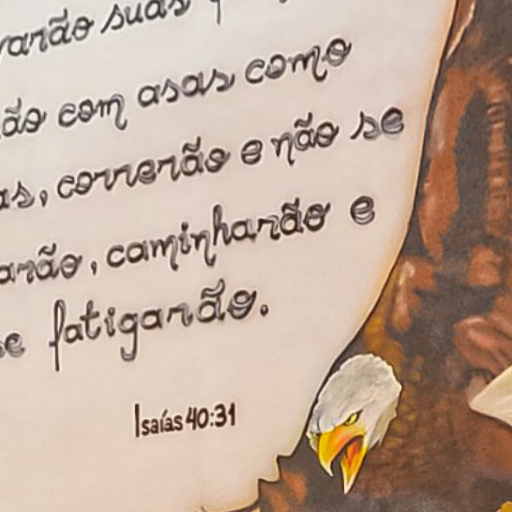 varão suas
ão com asas como
as, correrão e não se
arão, caminharão e
se fatigarão.
Isaías 40:31